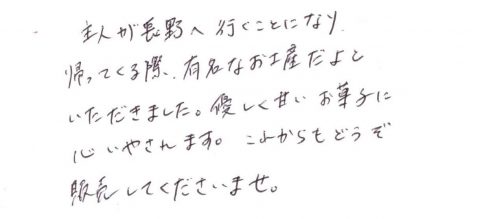 主人が長野へ行くことになり
帰ってくる際、有名なお土産だよと
いただきました。優しく甘いお菓子に
心いやされます。これからもどうぞ
販売してくださいませ。